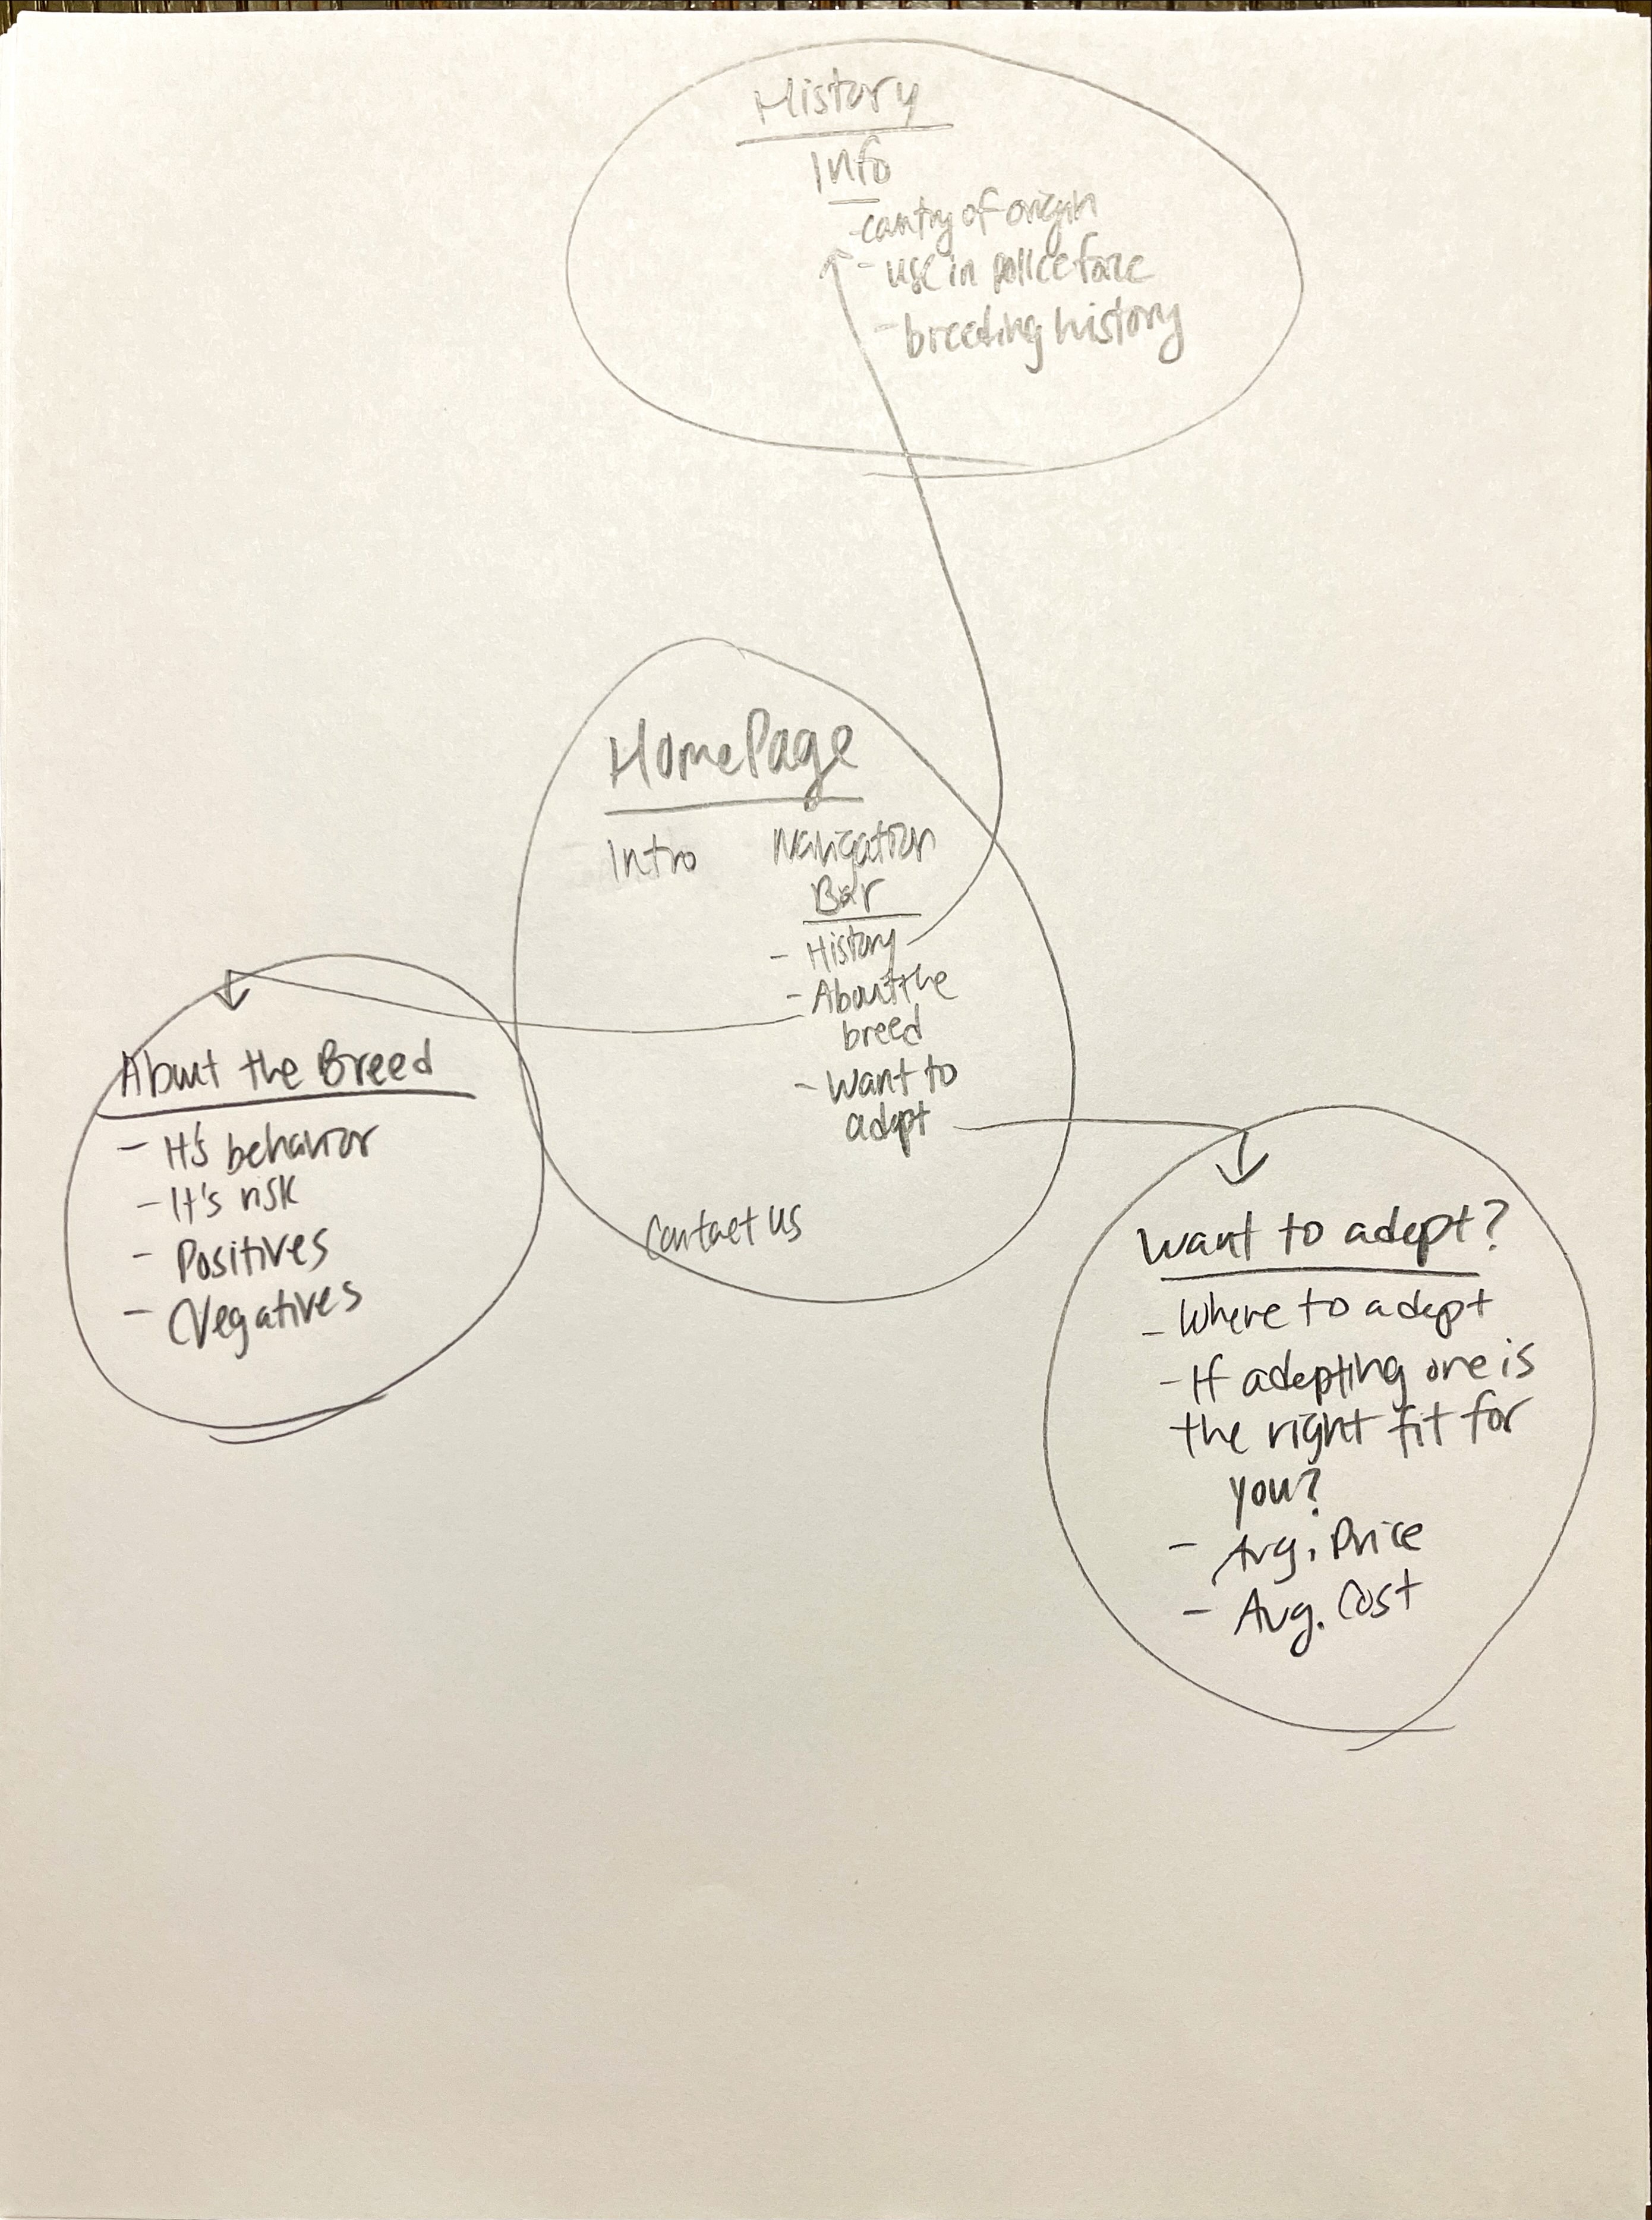 History
Info
- country of origin
- use in police force
- breeding history
HomePage
Intro
Navigation
Bar
- History
- About the
breed
- Want to
adopt
Contact us
About the Breed
- It's behavior
- It's risk
- Positives
- Negatives
Want to adopt?
- Where to adopt
- If adopting one is
the right fit for
you?
- Avg. Price
- Avg. Cost